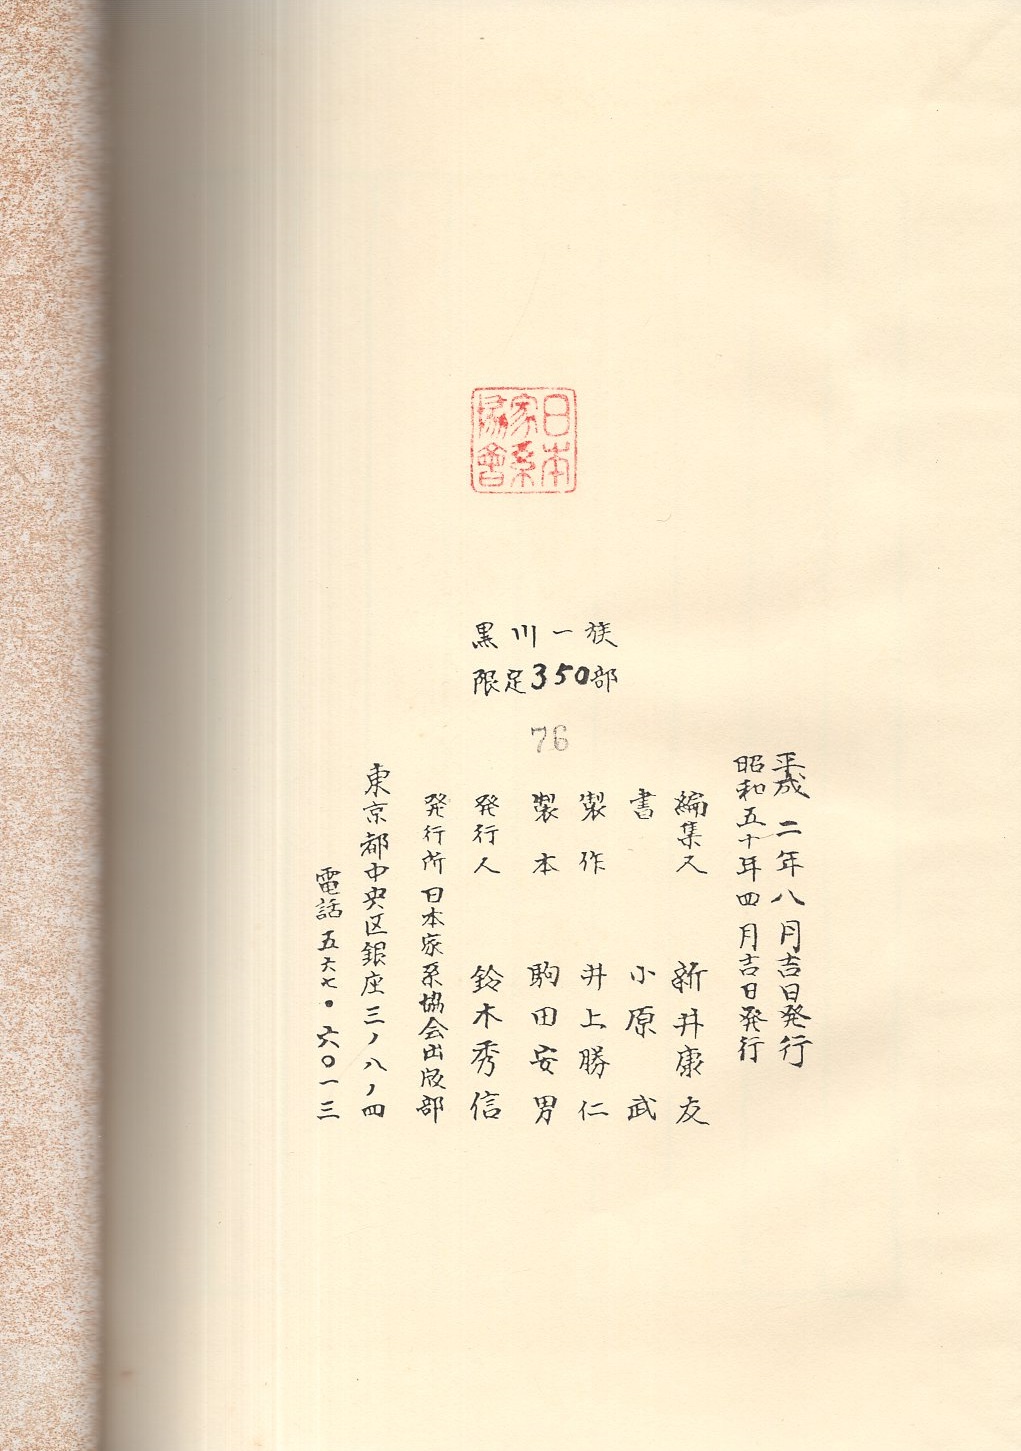 日本
家系
協會
黒川一族
限定350部
76
平成二年八月吉日発行
昭和五十年四月吉日発行
編集人 新井康友
書 小原武
製作 井上勝仁
製本 駒田安男
発行人 鈴木秀信
発行所 日本家系協会出版部
東京都中央区銀座三ノ八ノ四
電話 五六七・六〇一三